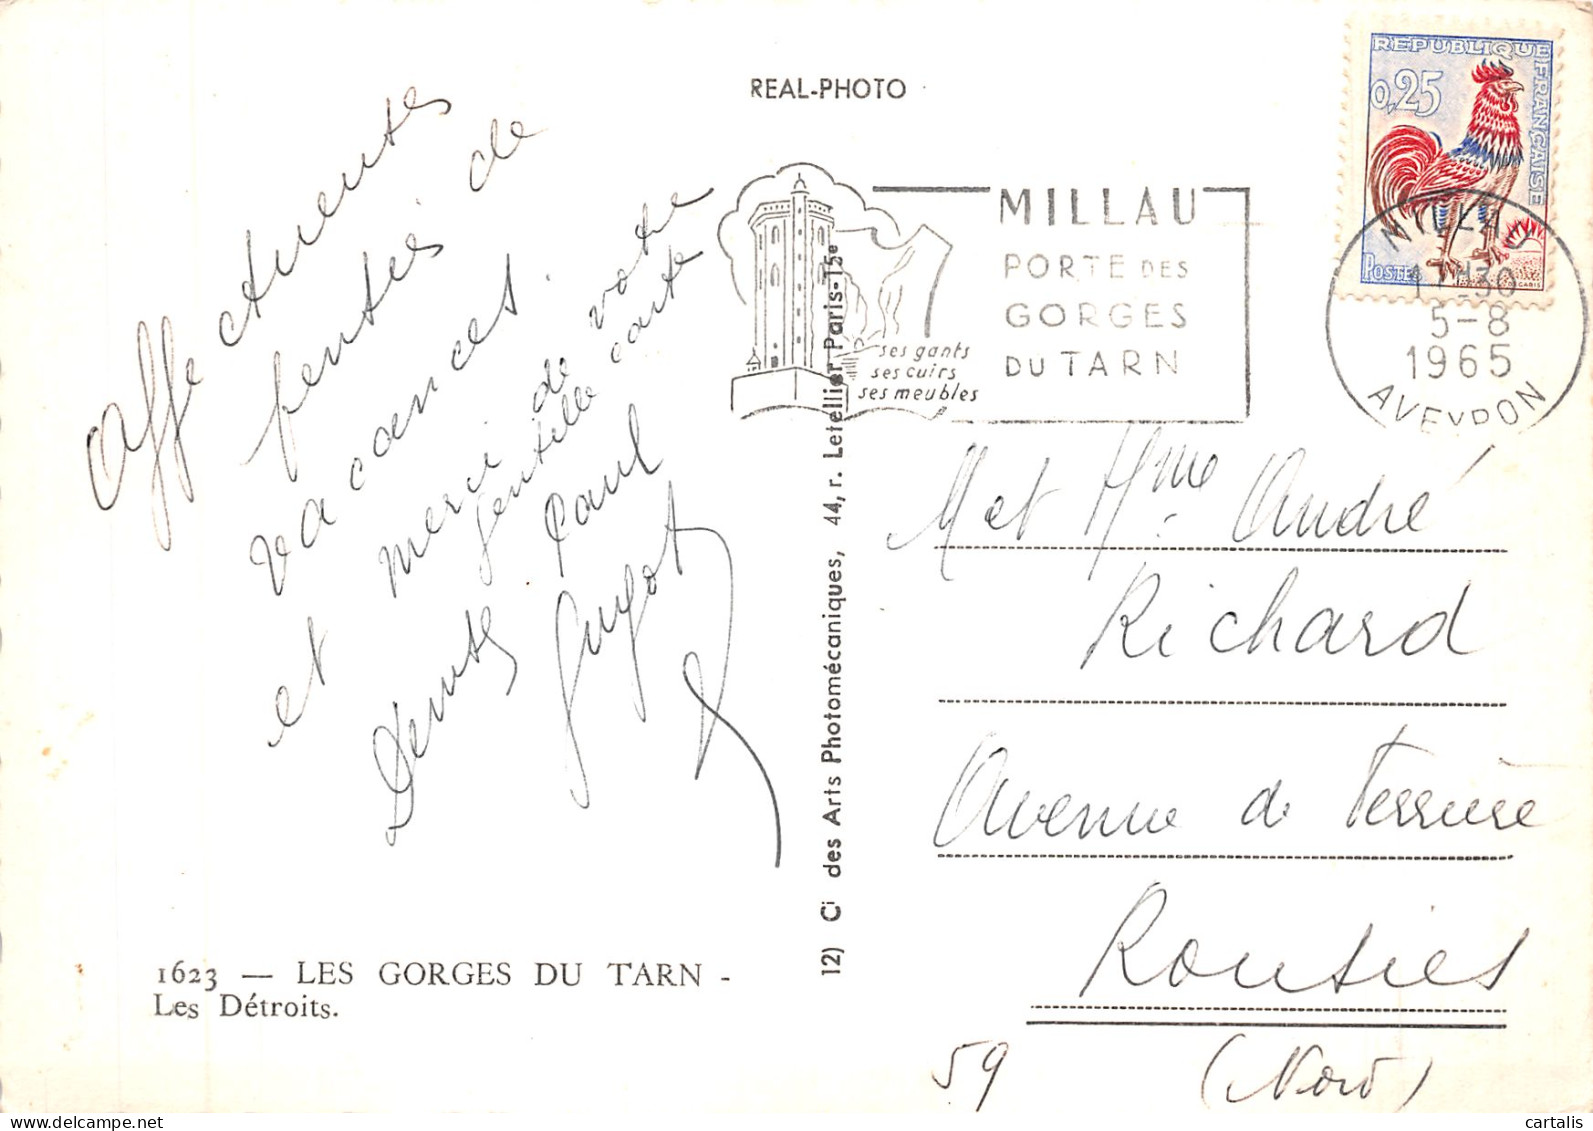 REAL-PHOTO
REPUBLIQUE FRANÇAISE
0,25
POSTES
MILLAU
PORTE DES
GORGES
DU TARN
ses gants
ses cuirs
ses meubles
MILLAU
30
5-8
1965
AVEYRON
Affectueuses
pensées de
vacances.
et merci de votre
gentille carte
Paul
Guyot
M et Mme André
Richard
Avenue de Ferrière
Rousies
59 (Nord)
12) Ci des Arts Photomécaniques, 44, r. Letellier Paris-15e
1623 — LES GORGES DU TARN -
Les Détroits.
cartalis